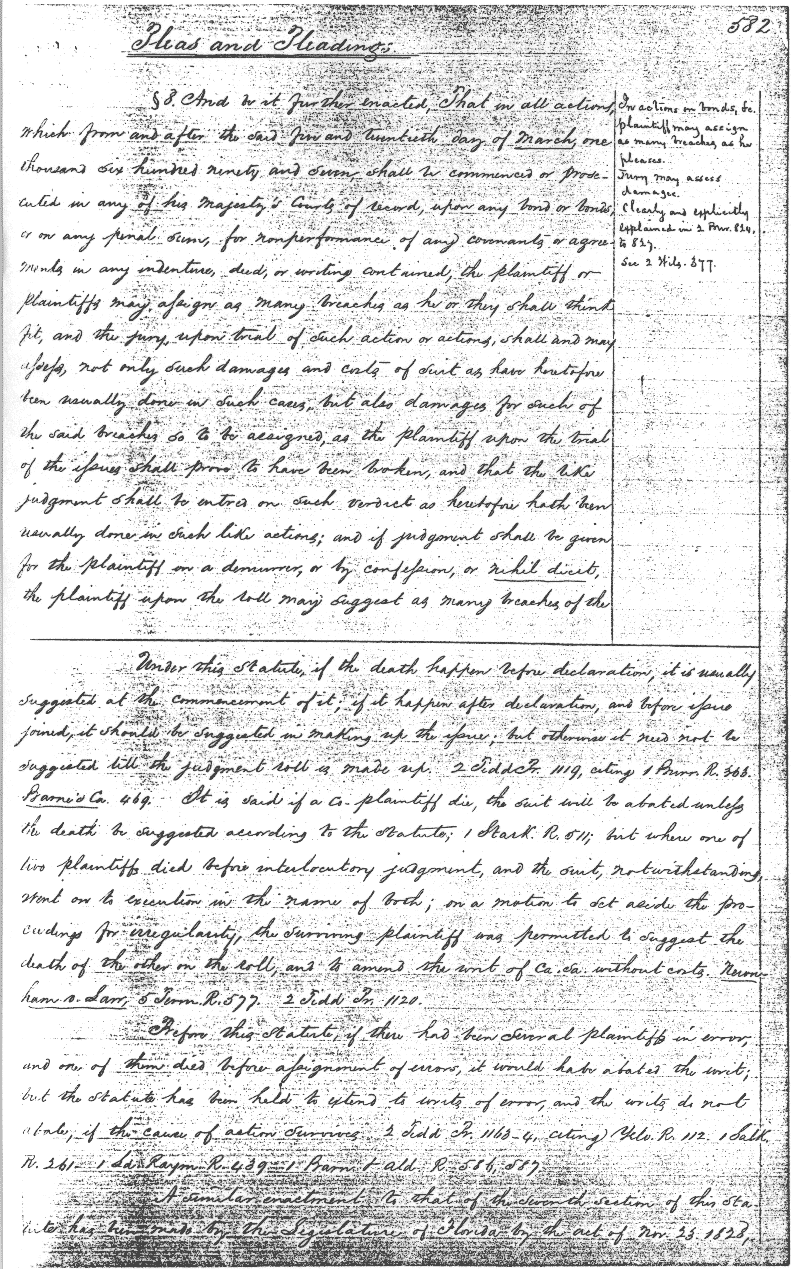 582
Pleas and Pleading:
§8. And be it further enacted, That in all actions,
which from and after the said five and twentieth day of March, one
thousand six hundred ninety and seven, shall be commenced or prose-
cuted in any of his Majesty's Courts of record, upon any bond or bonds,
or on any penal sum, for nonperformance of any covenants or agree-
ments in any indenture, deed, or writing contained, the plaintiff or
plaintiffs may assign as many breaches as he or they shall think
fit, and the jury, upon trial of such action or actions, shall and may
assess, not only such damages and costs of suit as have heretofore
been usually done in such cases, but also damages for such of
the said breaches so to be assigned, as the plaintiff upon the trial
of the issues shall prove to have been broken, and that the like
judgment shall be entred on such verdict as heretofore hath been
usually done in such like actions; and if judgment shall be given
for the plaintiff on a demurrer, or by confession, or nihil dicit,
the plaintiff upon the roll may suggest as many breaches of the
In actions on bonds, &c.
plaintiff may assign
as many breaches as he
pleases.
Jury may assess
damages.
Clearly and explicitly
explained in 2 Burr. 824,
to 827.
See 2 Wils. 377.
Under this statute, if the death happen before declaration, it is usually
suggested at the commencement of it; if it happen after declaration, and before issue
joined, it should be suggested in making up the issue; but otherwise it need not be
suggested till the judgment roll is made up. 2 Tidd Pr. 1119, citing 1 Burr. R. 363.
Barnes Ca. 469. It is said if a co-plaintiff die, the suit will be abated unless
the death be suggested according to the statute; 1 Stark. R. 511; but where one of
two plaintiffs died before interlocutory judgment, and the suit, notwithstanding,
went on to execution in the name of both; on a motion to set aside the pro-
ceedings for irregularity, the surviving plaintiff was permitted to suggest the
death of the other on the roll, and to amend the writ of Ca. sa. without costs. Newn-
ham v. Law, 5 Term. R. 577. 2 Tidd Pr. 1120.
Before this statute, if there had been several plaintiffs in error,
and one of them died before assignment of errors, it would have abated the writ;
but the statute has been held to extend to writs of error, and the writs do not
abate, if the cause of action survives. 2 Tidd Pr. 1163-4, citing Yelv. R. 112. 1 Salk.
R. 261. 1 Ld. Raym. R. 439. 1 Barn. & Ald. R. 586, 587
A similar enactment to that of the seventh section of this Sta-
tute has been made by the Legislature of Florida by the act of Nov. 23. 1828,